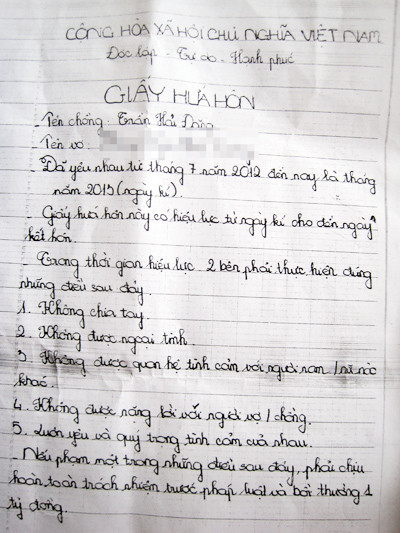 CỘNG HÒA XÃ HỘI CHỦ NGHĨA VIỆT NAM
Độc lập - Tự do - Hạnh phúc
GIẤY HỨA HÔN
- Tên chồng: Trần Hải Đăng
- Tên vợ:
- Đã yêu nhau từ tháng 7 năm 2012 đến nay là tháng
năm 2013 (ngày kí).
- Giấy hứa hôn này có hiệu lực từ ngày kí cho đến ngày
kết hôn.
Trong thời gian hiệu lực 2 bên phải thực hiện đúng
những điều sau đây
1. Không chia tay.
2. Không được ngoại tình.
3 Không được quan hệ tình cảm với người nam / nữ nào
khác.
4. Không được nặng lời với người vợ / chồng.
5. Luôn yêu và quý trọng tình cảm của nhau.
- Nếu phạm một trong những điều sau đây, phải chịu
hoàn toàn trách nhiệm trước pháp luật và bồi thường 1
tỷ đồng.